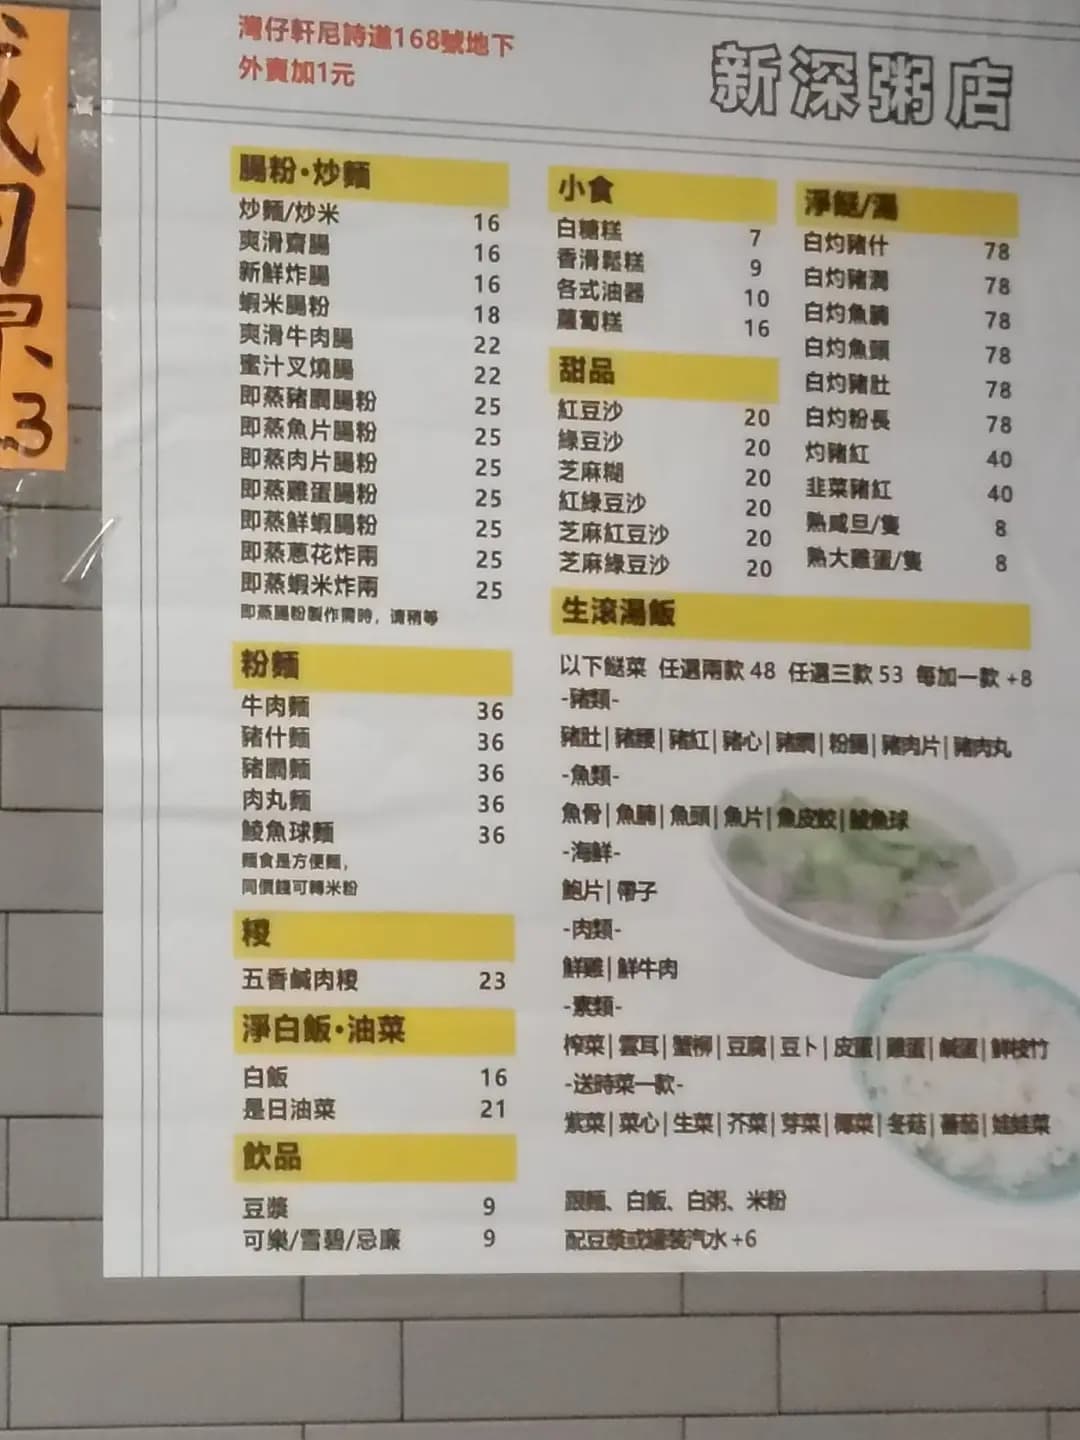 灣仔軒尼詩道168號地下
外賣加1元
新深粥店
腸粉·炒麵
炒麵/炒米 16
爽滑齋腸 16
新鮮炸腸 16
蝦米腸粉 18
爽滑牛肉腸 22
蜜汁叉燒腸 22
即蒸豬膶腸粉 25
即蒸魚片腸粉 25
即蒸肉片腸粉 25
即蒸雞蛋腸粉 25
即蒸鮮蝦腸粉 25
即蒸蔥花炸兩 25
即蒸蝦米炸兩 25
即蒸腸粉製作需時，请稍等
粉麵
牛肉麵 36
豬什麵 36
豬膶麵 36
肉丸麵 36
鯪魚球麵 36
麵食是方便麵，
同價錢可轉米粉
糭
五香鹹肉糭 23
淨白飯·油菜
白飯 16
是日油菜 21
飲品
豆漿 9
可樂/雪碧/忌廉 9
小食
白糖糕 7
香滑鬆糕 9
各式油器 10
蘿蔔糕 16
甜品
紅豆沙 20
綠豆沙 20
芝麻糊 20
紅綠豆沙 20
芝麻紅豆沙 20
芝麻綠豆沙 20
淨餸/湯
白灼豬什 78
白灼豬潤 78
白灼魚腩 78
白灼魚頭 78
白灼豬肚 78
白灼粉長 78
灼豬紅 40
韭菜豬紅 40
熟咸旦/隻 8
熟大雞蛋/隻 8
生滾湯飯
以下餸菜 任選兩款 48 任選三款 53 每加一款 +8
-豬類-
豬肚|豬腰|豬紅|豬心|豬膶|粉腸|豬肉片|豬肉丸
-魚類-
魚骨|魚腩|魚頭|魚片|魚皮餃|鯪魚球
-海鮮-
鮑片|帶子
-肉類-
鮮雞|鮮牛肉
-素類-
榨菜|雲耳|蟹柳|豆腐|豆卜|皮蛋|雞蛋|鹹蛋|鮮枝竹
-送時菜一款-
紫菜|菜心|生菜|芥菜|芽菜|椰菜|冬菇|蕃茄|娃娃菜
跟麵、白飯、白粥、米粉
配豆漿或罐裝汽水+6